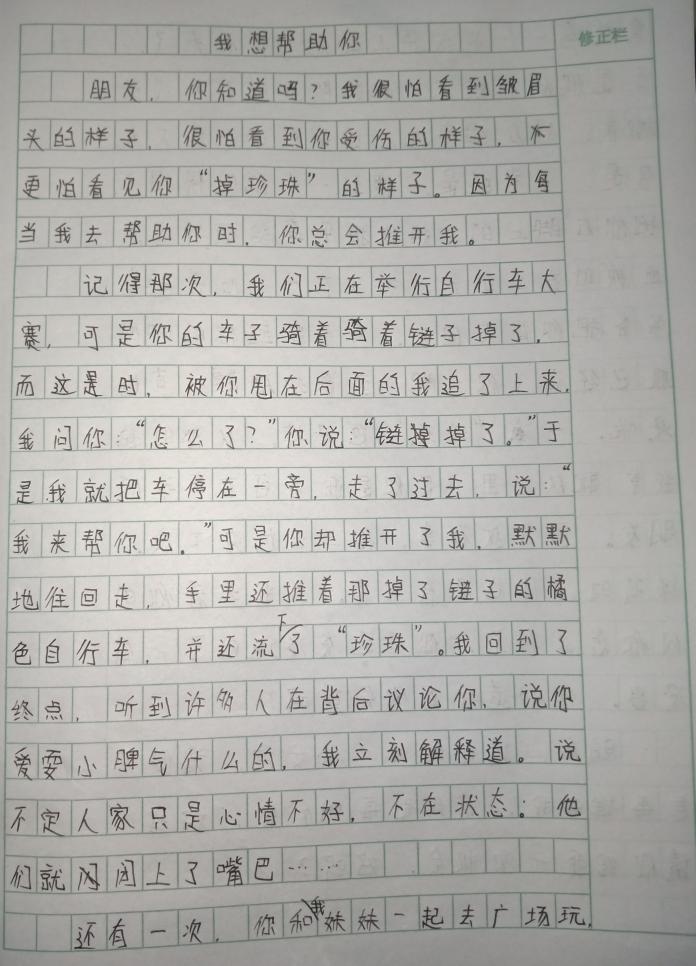 我想帮助你
修正栏
朋友，你知道吗？我很怕看到皱眉
头的样子，很怕看到你受伤的样子，不
更怕看见你“掉珍珠”的样子。因为每
当我去帮助你时，你总会推开我。
记得那次，我们正在举行自行车大
赛，可是你的车子骑着骑着链子掉了，
而这是时，被你甩在后面的我追了上来，
我问你：“怎么了？”你说：“链掉掉了。”于
是我就把车停在一旁，走了过去，说：“
我来帮你吧。”可是你却推开了我，默默
地往回走，手里还推着那掉了链子的橘
色自行车，并还流下了“珍珠”。我回到了
终点，听到许多人在背后议论你，说你
爱耍小脾气什么的，我立刻解释道。说
不定人家只是心情不好，不在状态；他
们就闭上了嘴巴……
还有一次，你和我妹妹一起去广场玩，